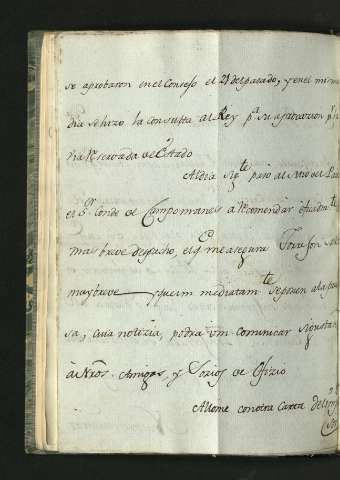 se aprobaron en el Consejo el 21 del pasado, y en el mismo
dia se hizo la Consulta al Rey pª su aprobacion pr
via reservada de Estado
Al dia sigte paso al
el Sr Conde de Campomanes a recomendar
mas breve despacho, el qe me asegura
muy breve y que inmediatamte se pasen a la
sa, cuia noticia, podra vm comunicar si gusta
à Nros. Amigos, y Socios de Ofizio
Allome con otra Carta del